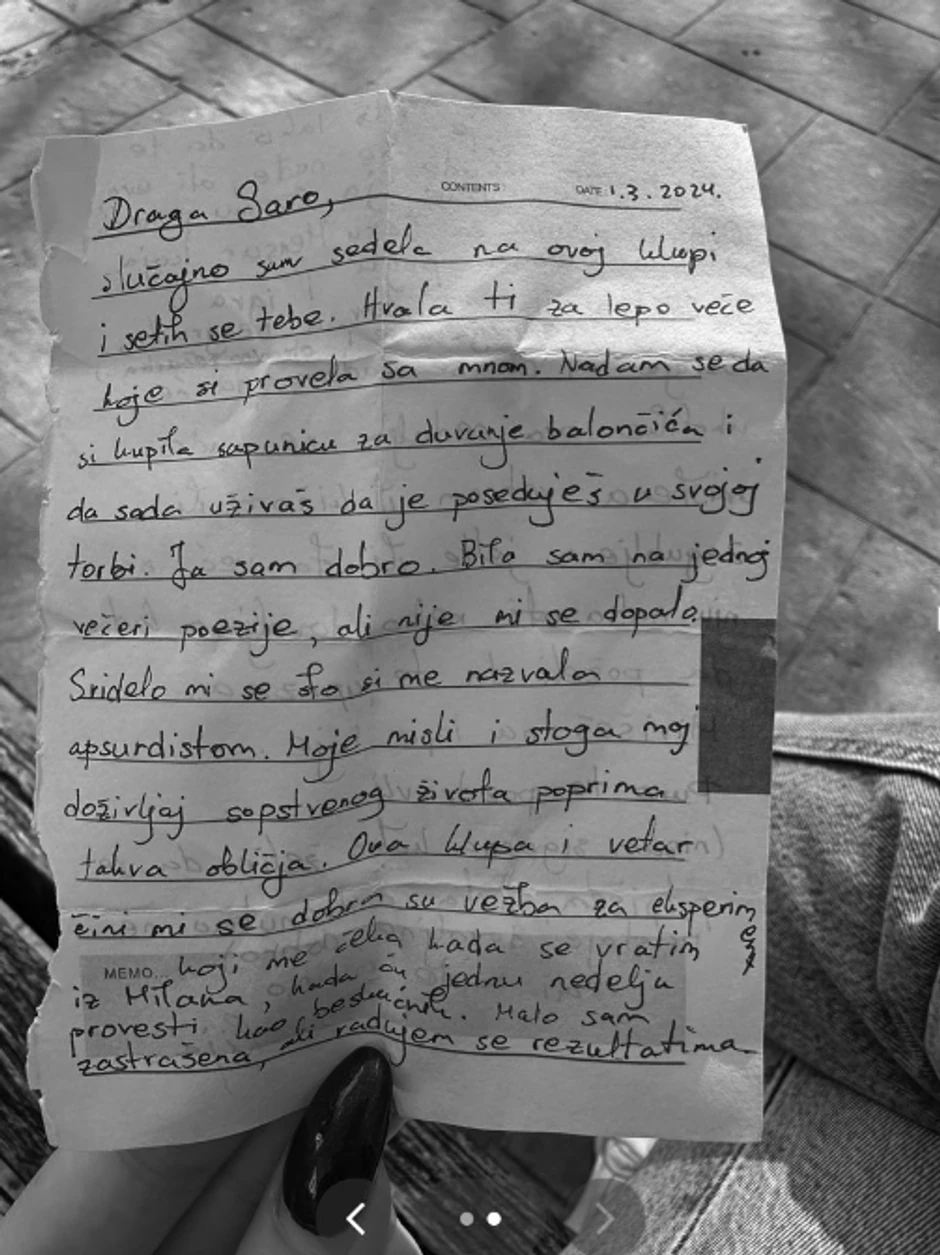 CONTENTS DATE 1.3.2024.
Draga Saro,
slučajno sam sedela na ovoj klupi
i setih se tebe. Hvala ti za lepo veče
koje si provela sa mnom. Nadam se da
si kupila sapunicu za duvanje balončića i
da sada uživaš da je poseduješ u svojoj
torbi. Ja sam dobro. Bila sam na jednoj
večeri poezije, ali nije mi se dopalo.
Svidelo mi se što si me nazvala
apsurdistom. Moje misli i stoga moj
doživljaj sopstvenog života poprima
takva obličja. Ova klupa i vetar
čini mi se dobra su vežba za eksperiment
MEMO... koji me čeka kada se vratim
iz Milana, kada ću jednu nedelju
provesti kao beskućnik. Malo sam
zastrašena, ali radujem se rezultatima.